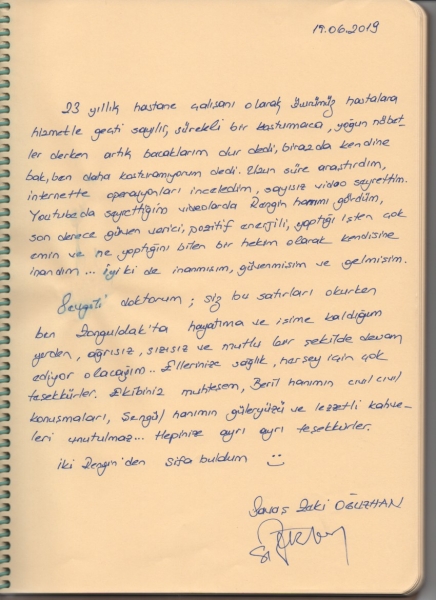 19.06.2019
23 yıllık hastane çalışanı olarak ömrümüz hastalara
hizmetle geçti sayılır, sürekli bir koşturmaca, yoğun nöbet-
ler derken artık bacaklarım dur dedi, biraz da kendine
bak, ben daha koşturamıyorum dedi. Uzun süre araştırdım,
internette operasyonları inceledim, sayısız video seyrettim.
Youtubeda seyrettiğim videolarda Rengin hanımı gördüm,
son derece güven verici, pozitif enerjili, yaptığı işten çok
emin ve ne yaptığını bilen bir hekim olarak kendisine
inandım... iyi ki de inanmışım, güvenmişim ve gelmişim.
Sevgili doktorum; siz bu satırları okurken
ben Zonguldak'ta hayatıma ve işime kaldığım
yerden, ağrısız, sızısız ve mutlu bir şekilde devam
ediyor olacağım.. Ellerinize sağlık, herşey için çok
teşekkürler. Ekibiniz muhteşem, Beril hanımın cıvıl cıvıl
konuşmaları, Şengül hanımın güleryüzü ve lezzetli kahve-
leri unutulmaz... Hepinize ayrı ayrı teşekkürler.
İki Rengin'den şifa buldum :)
Savaş Zeki OĞUZHAN